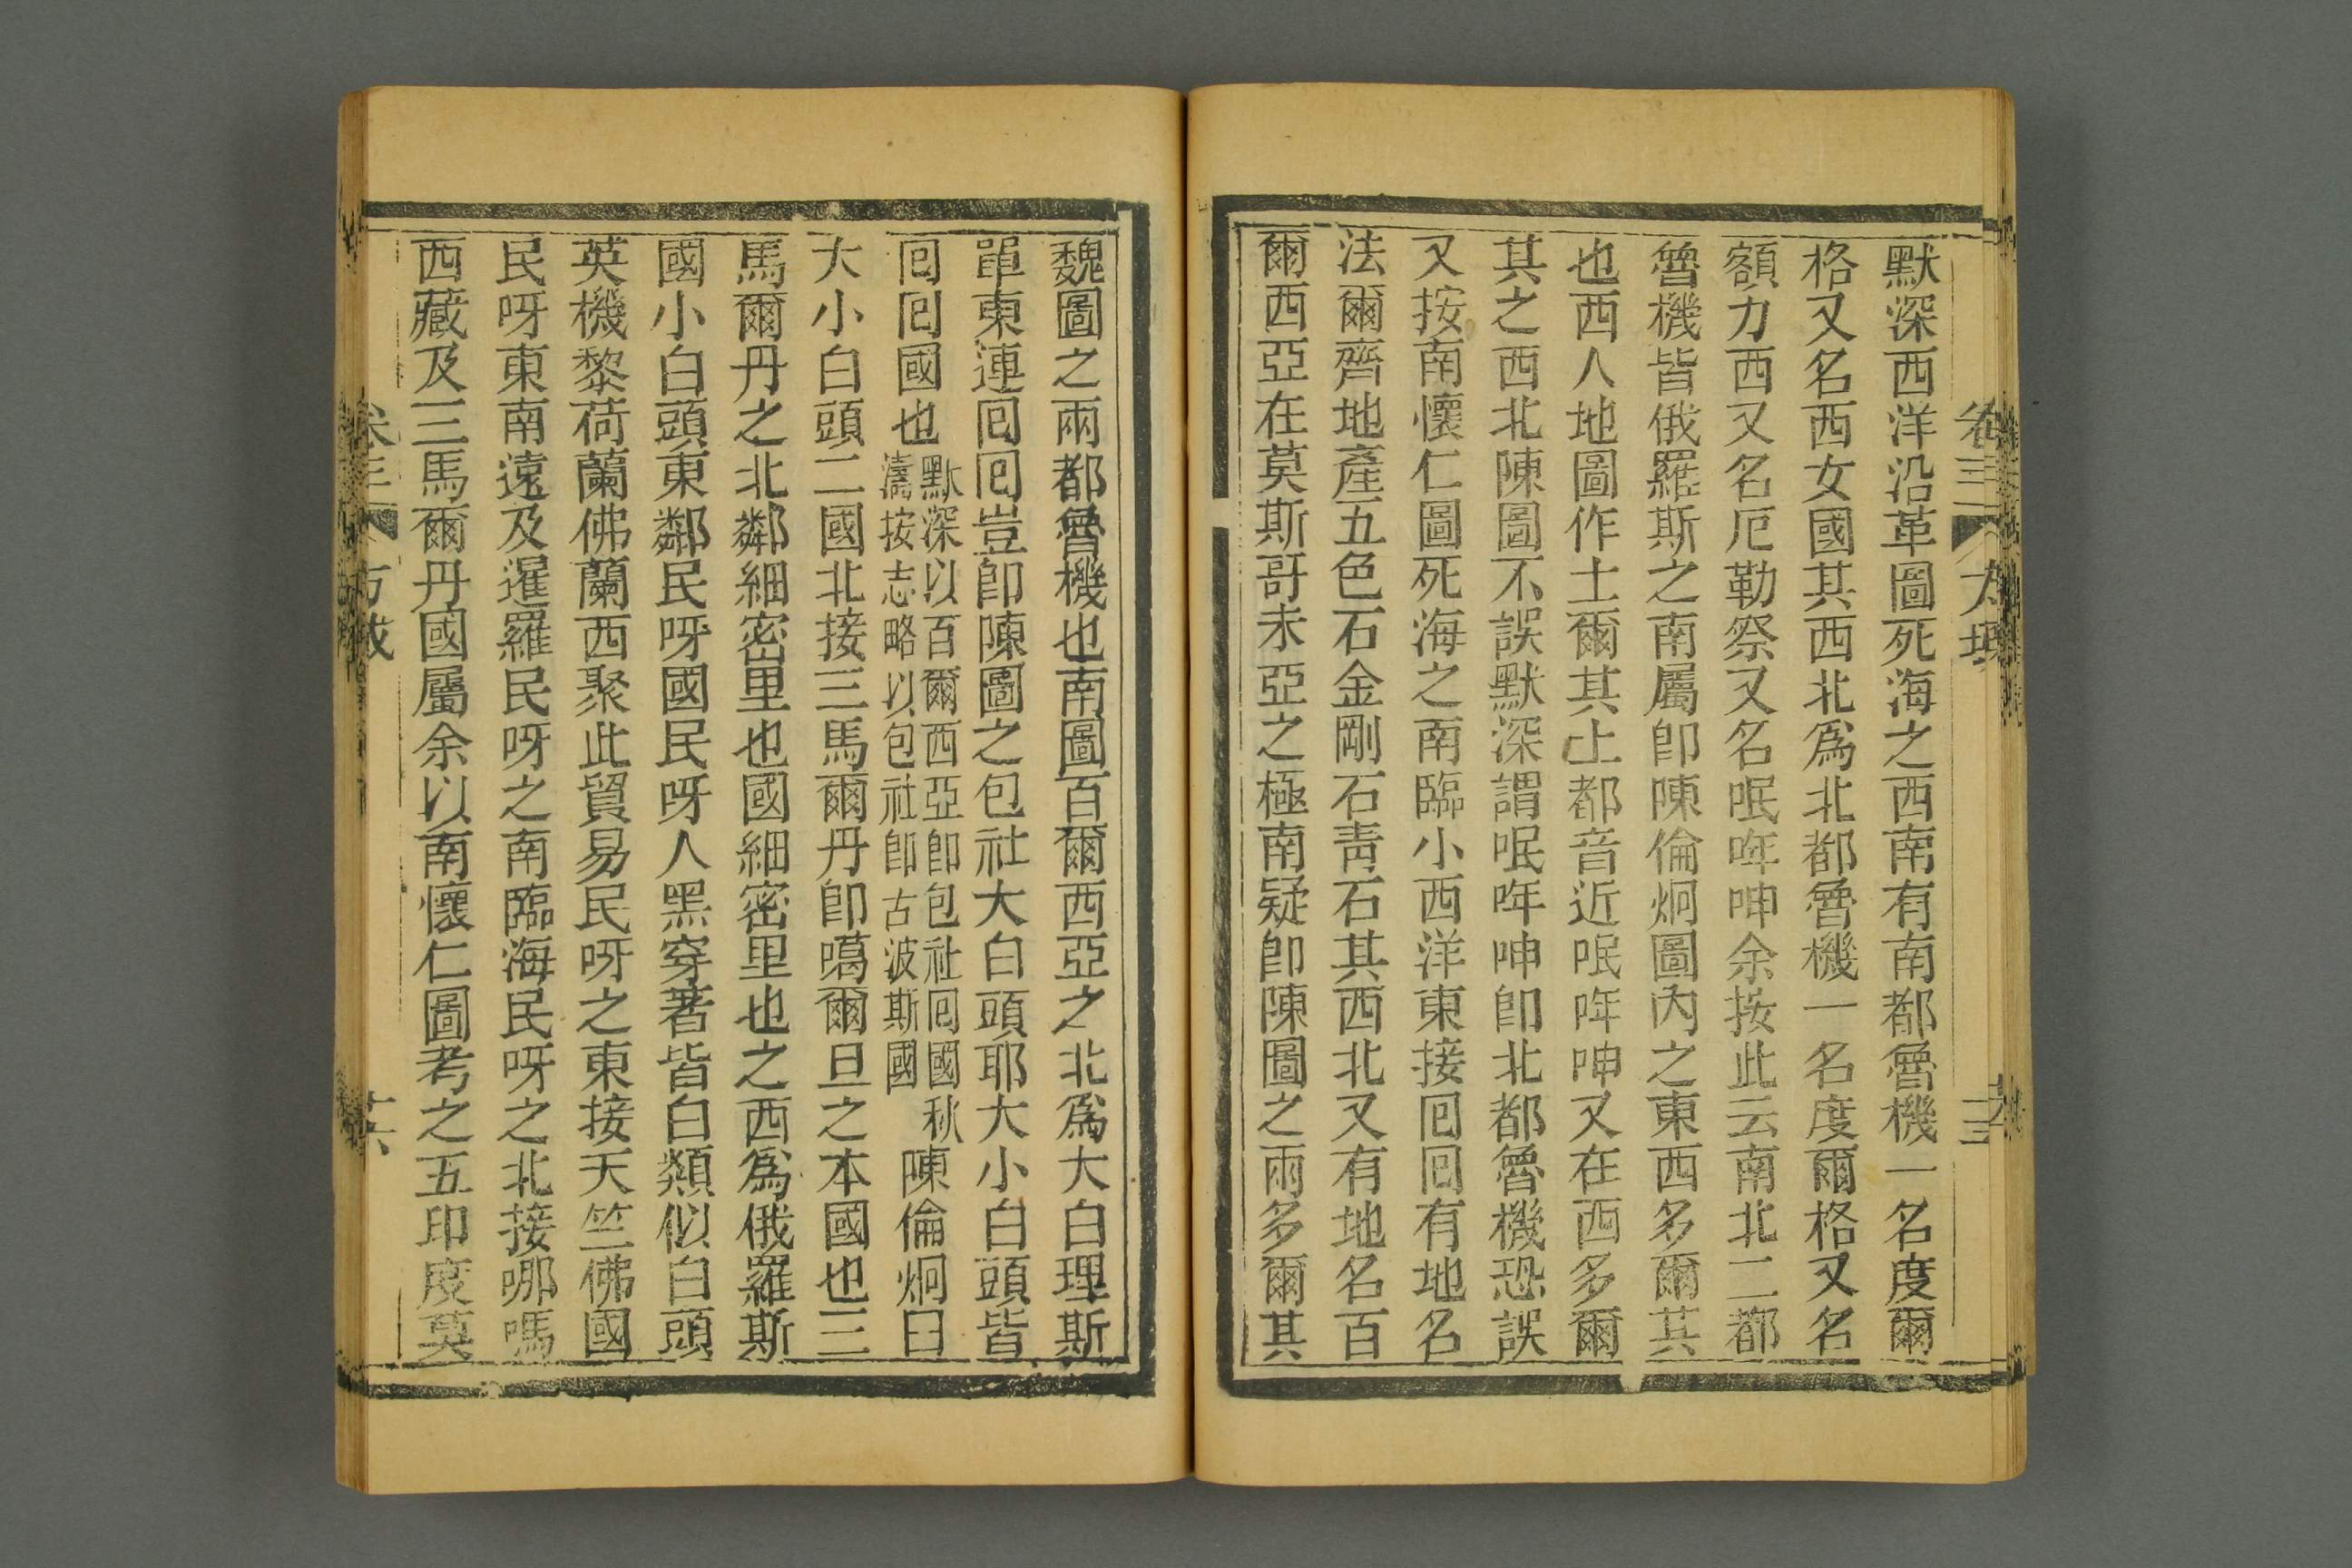 默深西洋沿革圖死海之西南有南都魯機一名度爾
格又名西女國其西北爲北都魯機一名度爾格又名
額力西又名厄勒祭又名呡哖呻余按此云南北二都
魯機皆俄羅斯之南屬卽陳倫炯圖內之東西多爾其
也西人地圖作土爾其上都音近呡哖呻又在西多爾
其之西北陳圖不誤默深謂呡哖呻卽北都魯機恐誤
又按南懷仁圖死海之南臨小西洋東接囘囘有地名
法爾齊地產五色石金剛石靑石其西北又有地名百
爾西亞在莫斯哥未亞之極南疑卽陳圖之兩多爾其
魏圖之兩都魯機也南圖百爾西亞之北爲大白理斯
單東連囘囘豈卽陳圖之包社大白頭耶大小白頭皆
囘囘國也
默深以百爾西亞卽包社囘國秋
濤按志略以包社卽古波斯國
陳倫炯曰
大小白頭二國北接三馬爾丹卽噶爾旦之本國也三
馬爾丹之北鄰細密里也國細密里也之西爲俄羅斯
國小白頭東鄰民呀國民呀人黑穿著皆白類似白頭
英機黎荷蘭佛蘭西聚此貿易民呀之東接天竺佛國
民呀東南遠及暹羅民呀之南臨海民呀之北接哪嗎
西藏及三馬爾丹國屬余以南懷仁圖考之五印度莫
卷三